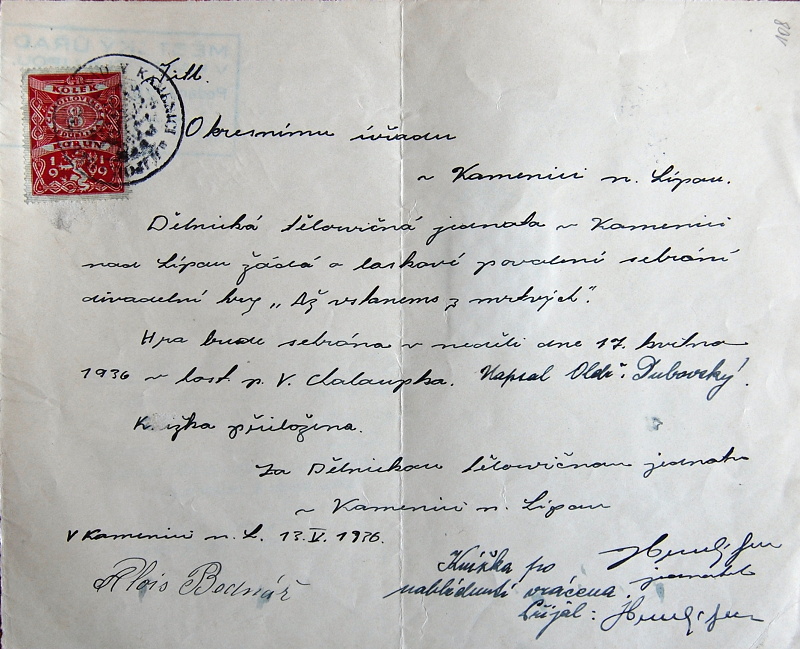 108
KOLEK
8
KORUN
1919
Titl.
Okresnímu úřadu
v Kamenici n. Lipou.
Dělnická tělocvičná jednota v Kamenici
nad Lipou žádá o laskavé povolení sehrání
divadelní hry „Až vstaneme z mrtvých".
Hra bude sehrána v neděli dne 17. května
1936 v host. p. V. Chaloupka. Napsal Oldř. Dubovský.
Knížka přiložena.
Za Dělnickou tělocvičnou jednotu
v Kamenici n. Lipou
V Kamenici n. L. 13. V. 1936.
Alois Bednář
jednatel
Knížka po
nahlédnutí vrácena.
Přijal: